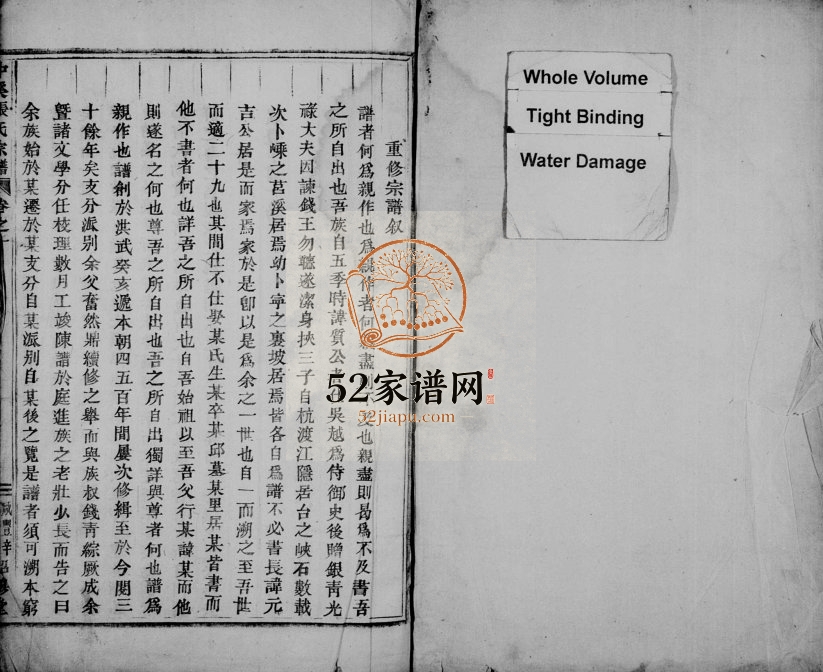 重修宗譜叙
譜者何為親作也為親作者何親盡則 也親盡則曷為不及書吾
之所自出也吾族自五季時諱質公 吳越為侍御史後贈銀青光
祿大夫因諫錢王勿聽遂潔身挾三子自杭渡江隱居台之峽石數載
次卜嵊之莒溪居焉幼卜寧之裏坡居焉皆各自為譜不必書長諱元
吉公居是而家焉家於是卽以是為余之一世也自一而溯之至吾世
而適二十九也其間仕不仕娶某氏生某卒某邱墓某里居某皆書而
他不書者何也詳吾之所自出也自吾始祖以至吾父行某諱某而他
則遂名之何也尊吾之所自出也吾之所自出獨詳與尊者何也譜為
親作也譜創於洪武癸亥遞本朝四五百年間屢次修緝至於今閱三
十餘年矣支分派別余父奮然鼎續修之舉而與族叔錢青綜厥成余
暨諸文學分任校理數月工竣陳譜於庭進族之老壯少長而告之曰
余族始於某遷於某支分自某派別自某後之覽是譜者須可溯本窮
張氏宗譜 卷之
Whole Volume
Tight Binding
Water Damage
52家谱网
52jiapu.com